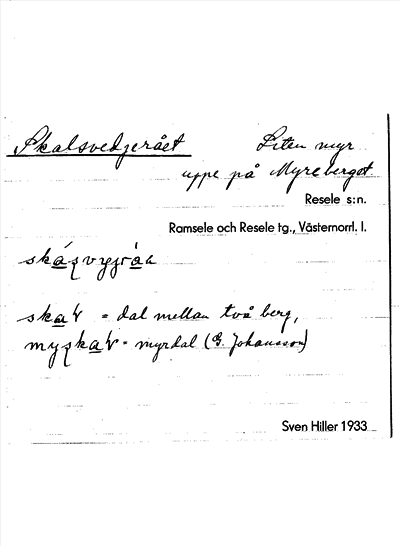 Skalsvedjerået Liten myr
uppe på Myreberget
Resele s:n.
Ramsele och Resele tg., Västernorrl. l.
= dal mellan två berg,
= myrdal (G. Johansson)
Sven Hiller 1933